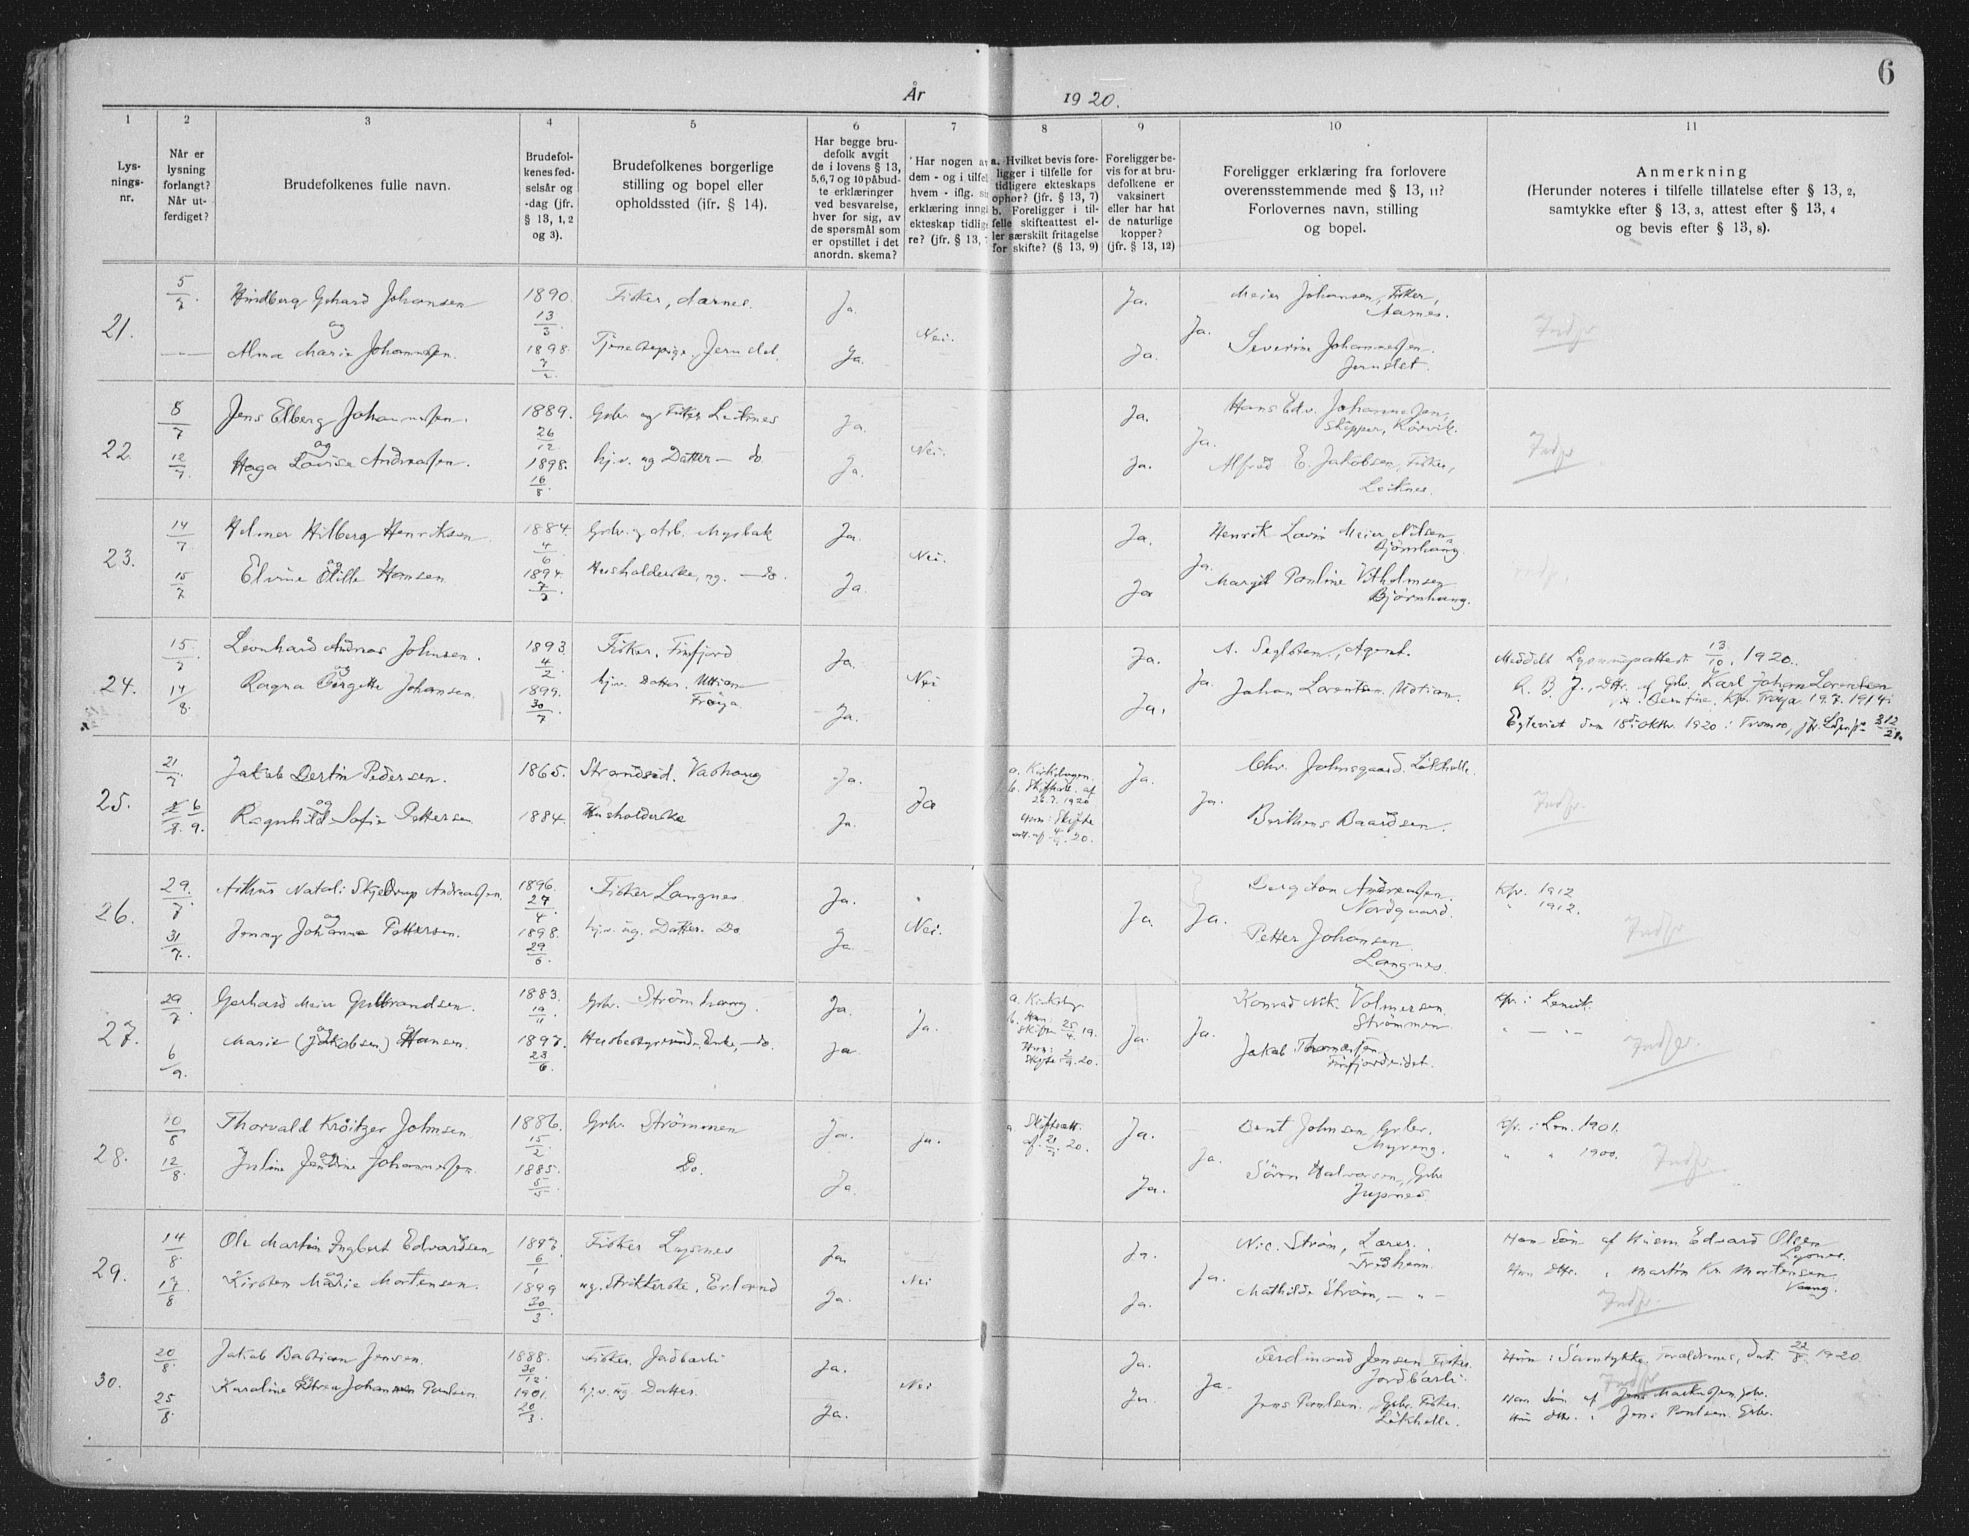 6
År 1920.
1 2 3 4 5 6 7 8 9 10 11
Lys-
nings-
nr.
Når er
lysning
forlangt?
Når ut-
ferdiget?
Brudefolkenes fulle navn.
Brudefol-
kenes fød-
selsår og
-dag (jfr.
§ 13, 1, 2
og 3).
Brudefolkenes borgerlige
stilling og bopel eller
opholdssted (ifr. § 14).
Har begge bru-
defolk avgit
de i lovens § 13,
5,6,7 og 10 påbud-
te erklæringer
ved besvarelse,
hver for sig, av
de spørsmål som
er opstillet i det
anordn. skema?
Har nogen av
dem - og i tilfel
hvem - iflg. sin
erklæring inngå
ekteskap tidlige
re? (jfr. § 13, 7
a. Hvilket bevis fore-
ligger i tilfelle for
tidligere ekteskaps
ophør? (jfr. § 13, 7)
b. Foreligger i til-
felle skifteattest el-
ler særskilt fritagelse
for skifte? (§ 13, 9)
Foreligger be-
vis for at bru-
defolkene er
vaksinert
eller har hat
de naturlige
kopper?
(jfr. § 13, 12)
Foreligger erklæring fra forlovere
overensstemmende med § 13, 11?
Forlovernes navn, stilling
og bopel.
Anmerkning
(Herunder noteres i tilfelle tillatelse efter § 13, 2,
samtykke efter § 13, 3, attest efter § 13, 4
og bevis efter § 13, 8).
21.
5/7.
Hindberg Gehard Johansen
og
Alma Marie Johannessen.
1890. 13/3.
1898. 7/2.
Fisker, Aarnes.
Tjenestepige, Jernslet.
Ja.
Ja.
Nei.
Ja.
Ja.
Ja.
Meier Johansen, Fisker,
Aarnes.
Severine Johannessen.
Jernslet.
Indfr
22.
8/7
12/7.
Jens Elberg Johannessen.
og
Haga Lovise Andreassen.
1889. 26/12
1898. 16/8
Gbr. og Fisker Leiknes
hj.v. ug Datter — do
Ja.
Ja.
Nei.
Ja.
Ja.
Ja.
Hans Edv. Johannessen,
Skipper, Kårvik.
Alfred E. Jakobsen, Fisker,
Leiknes.
Indfr
23.
14/7
15/7
Helmer Hilberg Henriksen.
og
Elvine Otille Hansen
1884. 4/6
1894.
Gbr. og Arb. Mysbak
Husholderske, ug. — do.
Ja.
Ja.
Nei.
Ja.
Ja
Ja.
Henrik Lavin Meier Nilsen
Bjørnhaug.
Margit Pauline Vilholmsen
Bjørnhaug.
24.
15/7
14/8.
Leonhard Andreas Johnsen.
og
Ragna Bergette Johansen.
1893 4/2
1899. 30/7
Fisker, Finfjord
hj.v. Datter. Uttian
Frøya
Ja.
Ja.
Nei
Ja.
Ja.
Ja.
A. Seglsten, Agent.
Johan Lorentsen Uttian.
Meddelt Lysningsattest 13/10. 1920.
R. B. J., Dtr. af Gbr. Karl Johan Lorentsen
Kfr. Frøya 19.7.1914.
Egteviet den 18de Oktbr. 1920 i Tromsø,
25.
21/7
6/9.
Jakob Dertin Pedersen.
og
Ragnhild Sofie Pettersen
1865.
1884.
Strandsid. Vashaug
Husholderske
Ja.
Ja.
Ja
a. Kirkebogen.
b. Skifteatt. af
26.7.1920
Ja.
Ja.
Chr. Johnsgaard. Løkhelle.
Berthens Baardsen.
Indfr.
26.
29/7.
31/7.
Arthur Natali Skjeldrup Andreassen.
og
Jenny Johanna Pettersen.
1896. 27/4.
1898. 29/6
Fisker Langnes.
hj.v. ug. Datter. Do
Ja.
Ja.
Nei.
Ja.
Ja.
Bergiton Andreassen.
Nordgaard.
Petter Johansen
Langnes.
Kfr. 1912
" 1912.
Indfr
27.
29/7
6/9
Gerhard Meier Gulbrandsen.
og
Marie (Jakobsen) Hansen.
1883. 19/11
1897. 23/6
Gbr. Strömhaug.
Husbestyrerinde, Enke, — do.
Ja.
Ja
Ja.
a. Kirkeby
b. Han:
Skifte 25/4 19.
Hun:
Skifte 2/9. 20.
Ja.
Ja.
Konrad Nik. Volmersen
Strömmen
Jakob Thomassen,
Finfjordeidet.
Kfr. i Lenvik.
" — " —
Indfr.
28.
10/8
12/8
Thorvald Kröitzer Johnsen
og
Juline Jendine Johannessen.
1886. 15/2
1885. 5/5
Gbr. Strömmen
Do.
Ja.
Ja.
Ja.
Skifteatt.
Ja.
Ja.
Ja.
Bent Johnsen, Gbr.
Myreng.
Sören Halvorsen, Gbr
Kfr. i Len. 1901.
" " 1900.
Indfr.
29.
14/8
17/8
Ole Martin Ingbert Edvardsen
og
Kirsten Marie Mortensen.
1897 6/1
1899 30/3
Fisker Lysnes
ug. Strikkerske,
Ja
Ja.
Nei
Ja.
Ja.
Ja.
Nic. Strøm, Lærer.
Fredheim.
Mathilde Strøm, — " —
Han Søn af Husm Edvard Olsen
Lysnes.
Hun Dttr. " Martin Kr. Mortensen
Indfr.
30.
20/8
25/8
Jakob Bastian Jensen.
Karoline Petrea Johansen Paulsen
1888. 30/12.
1901. 20/3.
Fisker. Jordbærli
hj.v. ug Datter.
Ja.
Ja.
Nei
Ja.
Ja
Ja.
Ferdinand Jensen Fisker
Jordbærli.
Jens Paulsen. Gbr. Fisker.
Løkhelle.
Hun: Samtykke Forældrenes, dat. 22/8 1920
Indfr
Han Søn af Jens Markussen, Gbr.
Hun Dttr. " Jens Paulsen. Gbr.